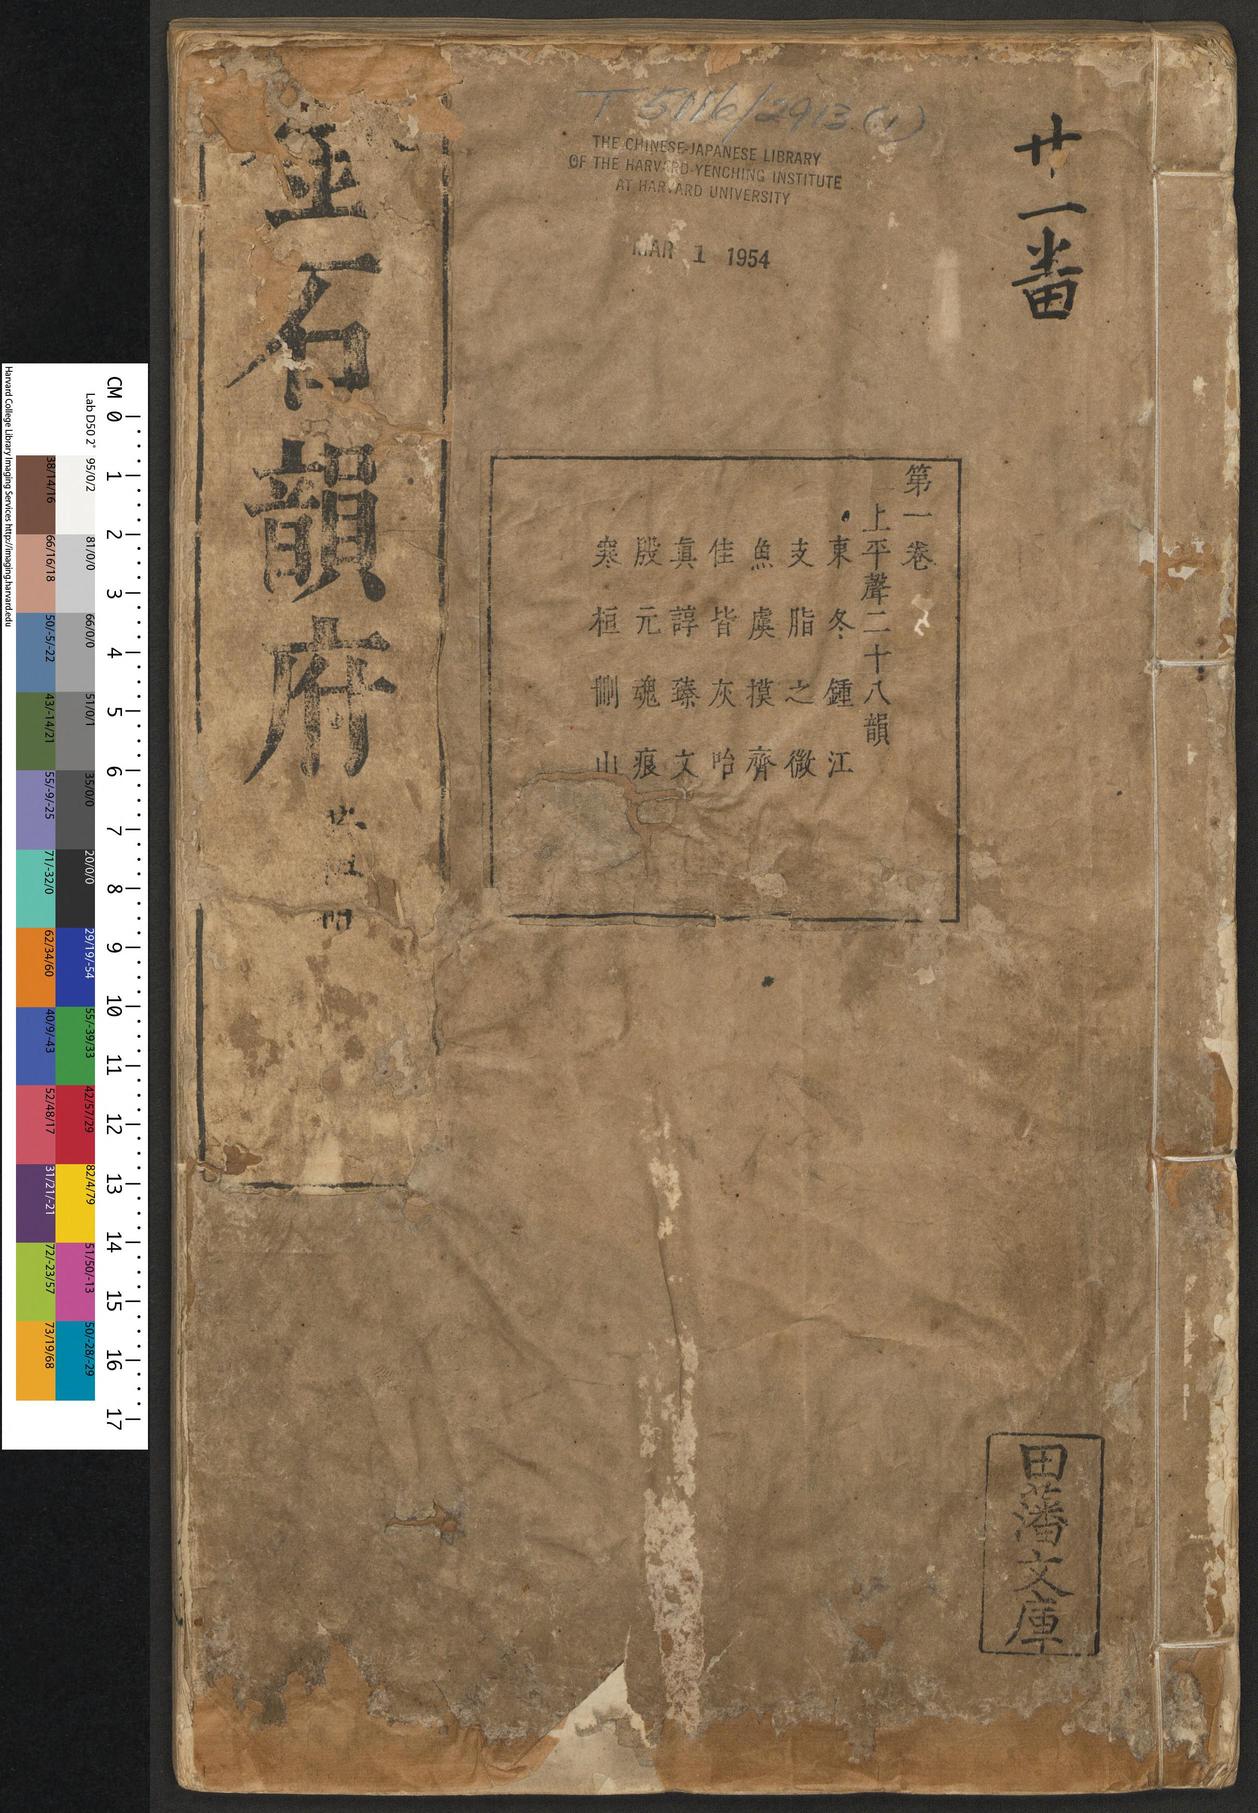 T 5116/2913 (1)
THE CHINESE-JAPANESE LIBRARY
OF THE HARVARD-YENCHING INSTITUTE
AT HARVARD UNIVERSITY
MAR 1 1954
廿一番
第一卷
上平聲二十八韻
東 冬 鍾 江
支 脂 之 微
魚 虞 摸 齊
佳 皆 灰 咍
眞 諄 臻 文
殷 元 魂 痕
寒 桓 刪 山
金石韻府
冊
田藩文庫
CM 0 1 2 3 4 5 6 7 8 9 10 11 12 13 14 15 16 17
Lab D50 2°
95/0/2 81/0/0 66/0/0 51/0/1 35/0/0 20/0/0 29/19/-54 55/-39/33 42/57/29 82/4/79 51/50/-13 50/-28/-29
38/14/16 66/16/18 50/-5/-22 43/-14/21 55/-9/-25 71/-32/0 62/34/60 40/9/-43 52/48/17 31/21/-21 72/-23/57 73/19/68
Harvard College Library Imaging Services http://imaging.harvard.edu